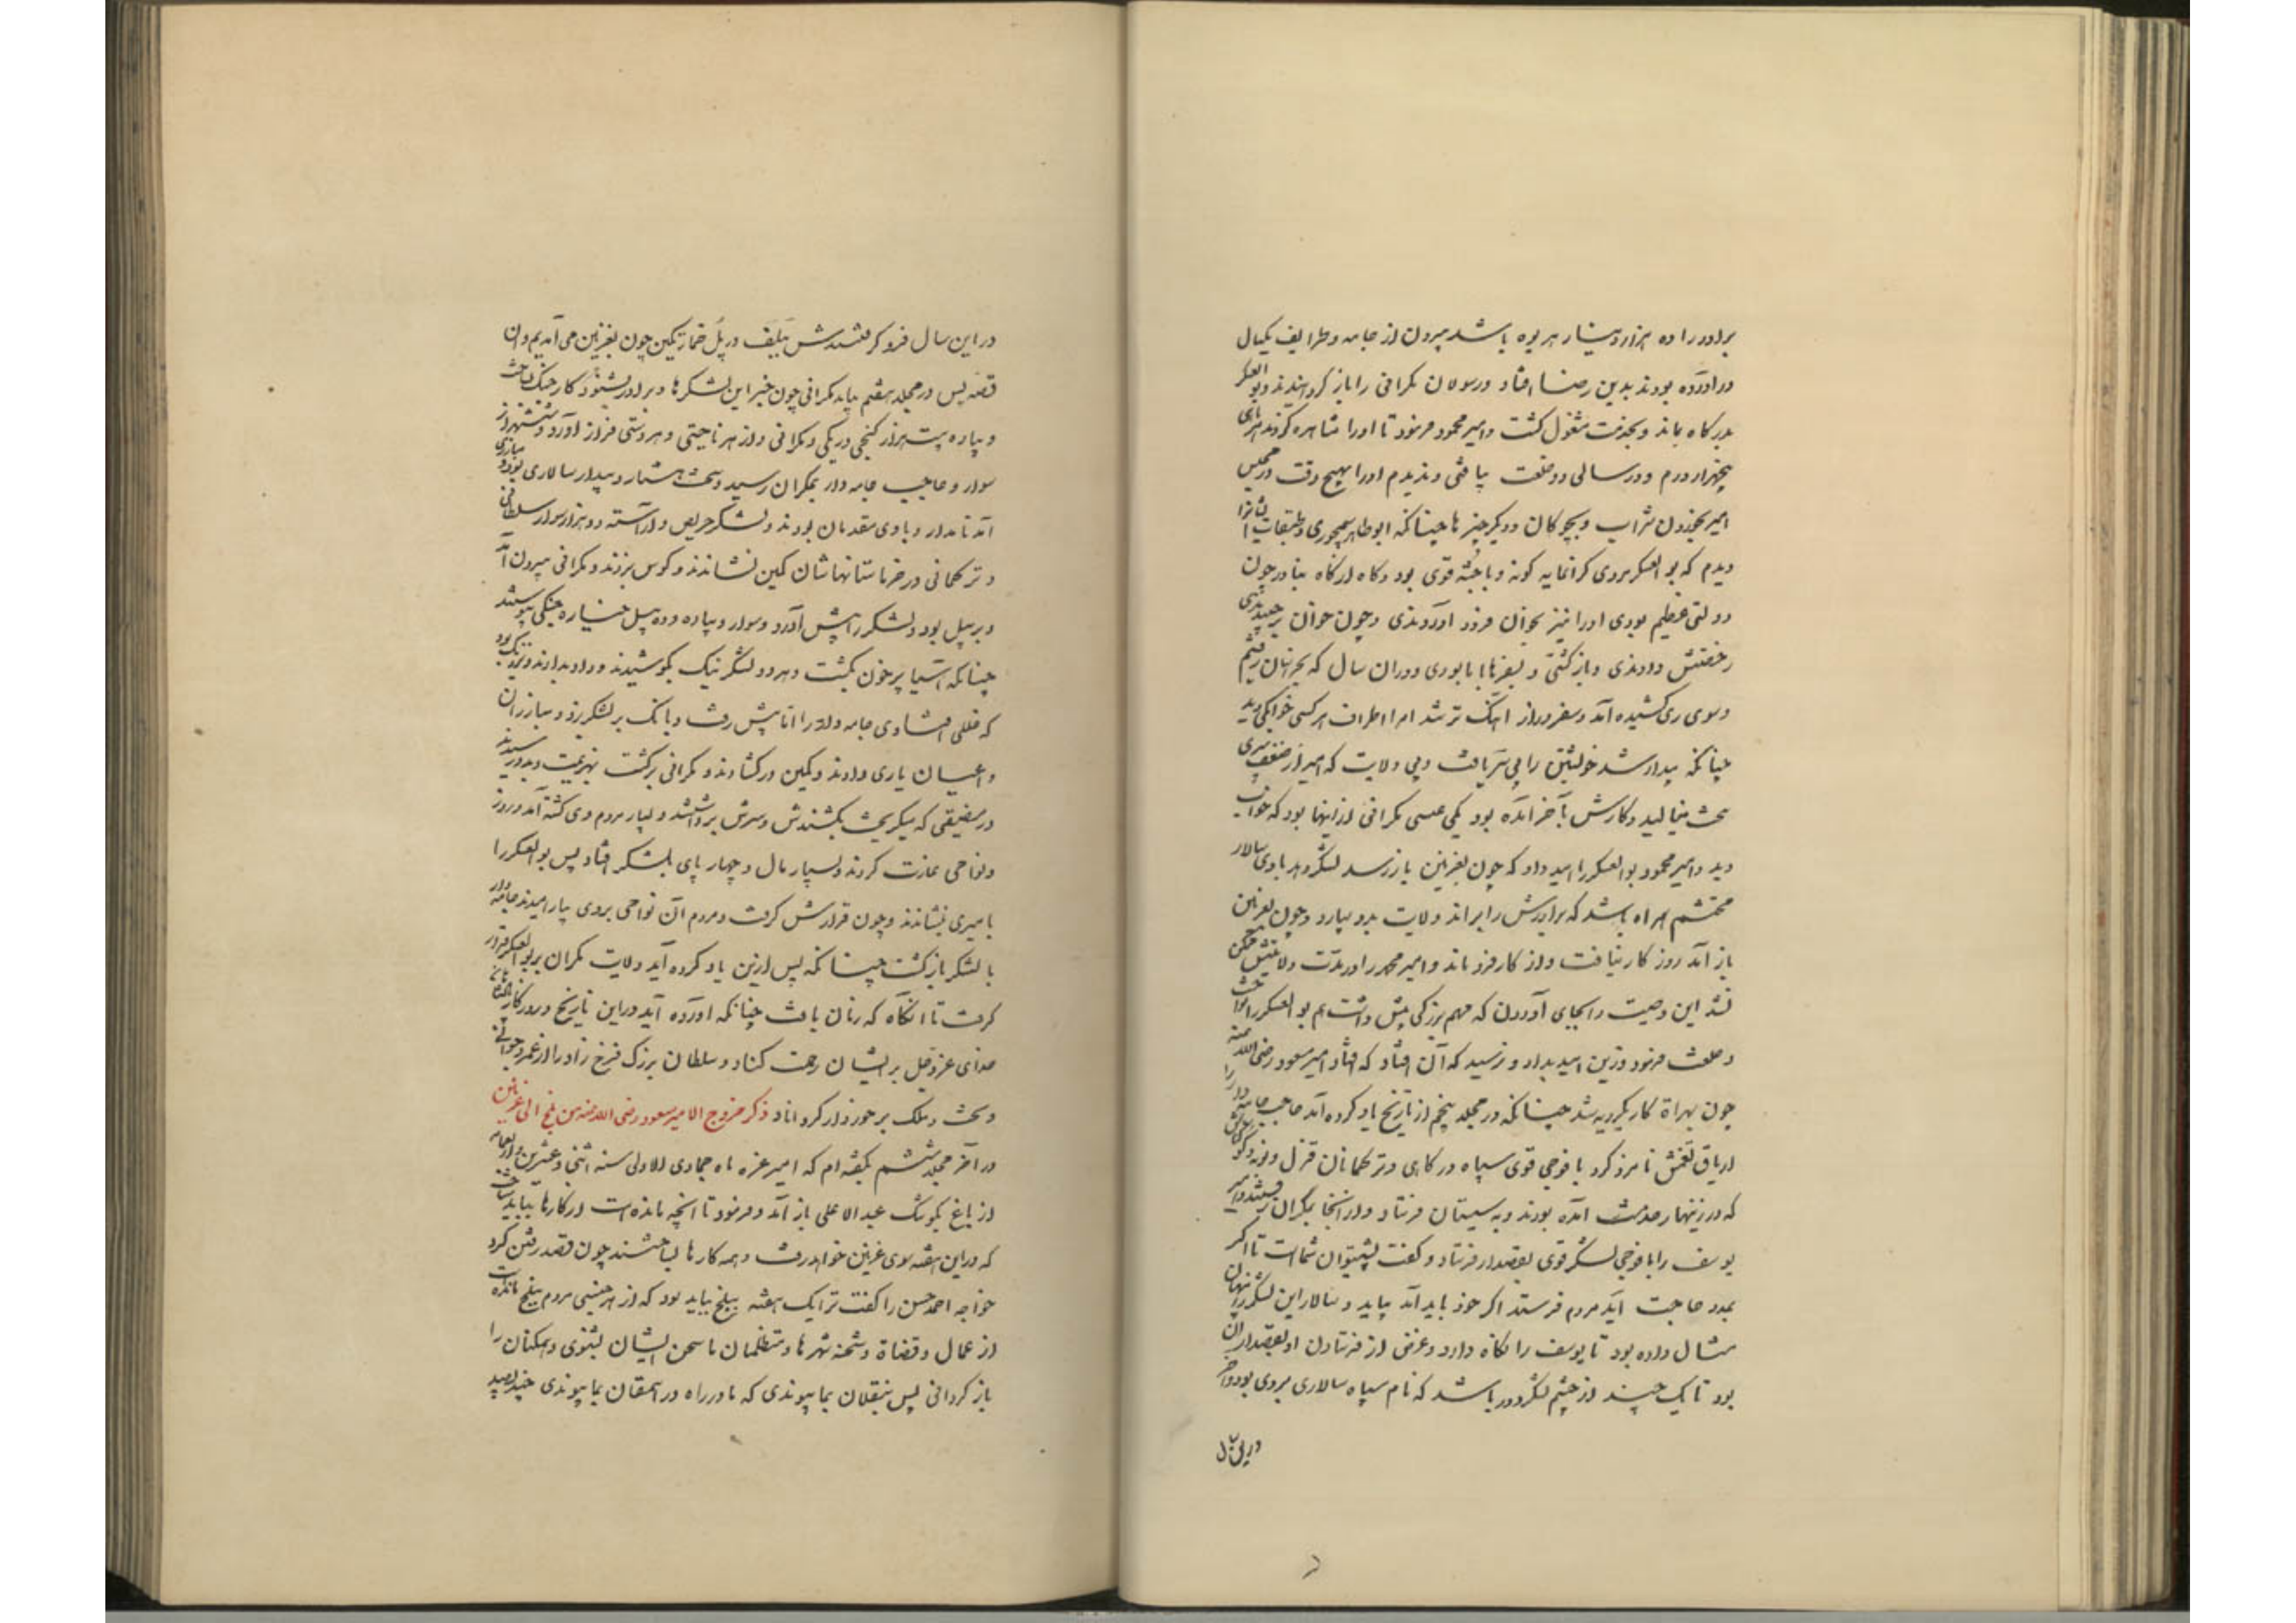 برادر را ده هزار دینار هریوه باشد بیرون از جامه و طرایف یکسال
در آورده بودند بدین رضا افتاد و رسولان مکرانی را باز گردانیدند و بو العسکر
بدرگاه بماند و بخدمت مشغول گشت و امیر محمود فرمود تا او را مشاهره کردند هر ماهی
پنجهزار درم و در سالی دو خلعت یافتی و ندیدم او را بهیچ وقت در مجلس
امیر بخوردن شراب و بچوگان و دیگر چیزها چنانکه ابو طاهر سیمجوری و طبقات ایشانرا
دیدم که بو العسکر مردی گرانمایه گونه و با جثه قوی بود و گاه از گاه بنادر چون
دولتی عظیم بودی او را نیز بخوان فرود آوردندی و چون خوان برچیدندی
رخصتش دادندی و بازگشتی و بسفرها با ما بودی و در ان سال که بخراسان رفتیم
و سوی ری کشیده آمد و سفر دراز آهنگ تر شد امرا اطراف هر کسی خوابکی دید
چنانکه بیدار شد خویشتن را بی سر یافت و بی ولایت که امیر از ضعف پیری
سخت بنالید و کارش بآخر آمده بود یکی عیسی مکرانی ازینها بود که خواب
دید و امیر محمود بو العسکر را امید داد که چون بغزنین باز رسد لشکر دهد با وی سالار
محتشم همراه باشد که برادرش را براند و ولایت بدو سپارد و چون بغزنین
باز آمد روز کار نیافت و از کار فرو ماند و امیر محمد را در مدت ولایتش ممکن
نشد این وصیت را بجای آوردن که مهم بزرگی پیش داشت هم بو العسکر را بنواخت
و خلعت فرمود و زین امید بداد و نرسید که آن افتاد که افتاد امیر مسعود رضی الله عنه
چون بهراة کار یکرویه شد چنانکه در مجلد پنجم از تاریخ یاد کرده آمد حاجب جامه دار را
اریاق تغمش نامزد کرد با فوجی قوی سپاه درگاهی و ترکمانان قزل و بوقه و کوکتاش
که در زینهار خدمت آمده بودند و به سیستان فرستاد و از آنجا بمکران رفتند و امیر
یوسف را با فوجی لشکر قوی بقصدار فرستاد و گفت پشتیوان شماست تا اگر
بمدد حاجت آید مردم فرستد اگر خود باید آمد بیاید و سالار این لشکر را پنهان
مثال داده بود تا یوسف را نگاه دارد و غرض از فرستادن او بقصدار آن
بود تا یک چند از چشم لشکر دور باشد که نام سپاه سالاری بروی بود و آخر
در این سال
در این سال فرو گرفتندش ببلف در پل خمارتکین چون بغزنین می آمدیم و ان
قصه پس در مجلد هفتم بیاید مکرانی چون خبر این لشکرها و برادر بشنود کار جنگ بساخت
و پیاده بیست هزار کیجی و ریگی و مکرانی و از هر ناحیتی و هر دستی فراز آورد و شش هزار
سوار و حاجب جامه دار بمکران رسید و سخت هشیار و بیدار سالاری بود و مبارزی
آمد نامدار و با وی مقدمان بودند و لشکر حریص و آراسته دو هزار سوار سلطانی
و ترکمانی در خرماستانهاشان کمین نشاندند و کوس بزدند و مکرانی بیرون آمد
و بر پیل بود و لشکر را پیش آورد و سوار و پیاده و ده پیل خیاره جنگی پیوستند
چنانکه آسیا بر خون بگشت و هر دو لشکر نیک بکوشیدند و داد بدادند و نزدیک بود
که خللی افتادی جامه دار را اما پیش رفت و بانگ بر لشکر زد و مبارزان
و اعیان یاری دادند و کمین در گشادند و مکرانی برگشت بهزیمت و بدو رسیدند
در مضیقی که میگریخت بکشتندش و سرش برداشتند و بسیار مردم وی کشته آمد و سه روز
و نواحی غارت کردند و بسیار مال و چهار پای بلشکر افتاد پس بو العسکر را
بامیری نشاندند و چون قرارش گرفت و مردم آن نواحی بروی بیارامیدند جامه دار
با لشکر بازگشت چنانکه پس ازین یاد کرده آید و ولایت مکران بر بو العسکر قرار
گرفت تا آنگاه که فرمان یافت چنانکه آورده آید در این تاریخ و روزگار پادشاهان
خدای عز و جل بر ایشان رحمت کناد و سلطان بزرگ فرخ زاد را از عمر و جوانی
و تخت و ملک برخوردار گرداناد ذکر خروج الامیر مسعود رضی الله عنه من بلخ الی غزنین
در آخر مجلد ششم بگفته ام که امیر غره ماه جمادی الاولی سنه اثنی و عشرین و اربعمائه
از باغ بکوشک عبد الاعلی باز آمد و فرمود تا آنچه مانده است از کارها بباید ساخت
که در این هفته سوی غزنین خواهد رفت و همه کارها بساختند چون قصد رفتن کرد
خواجه احمد حسن را گفت ترا یک هفته ببلخ بباید بود که از هر جنسی مردم ببلخ مانده است
از عمال و قضاة و شحنه شهرها و متظلمان تا سخن ایشان بشنوی و همگنان را
باز گردانی پس ببقلان بما پیوندی که ما در راه در اسمنقان بما پیوندی چند صید